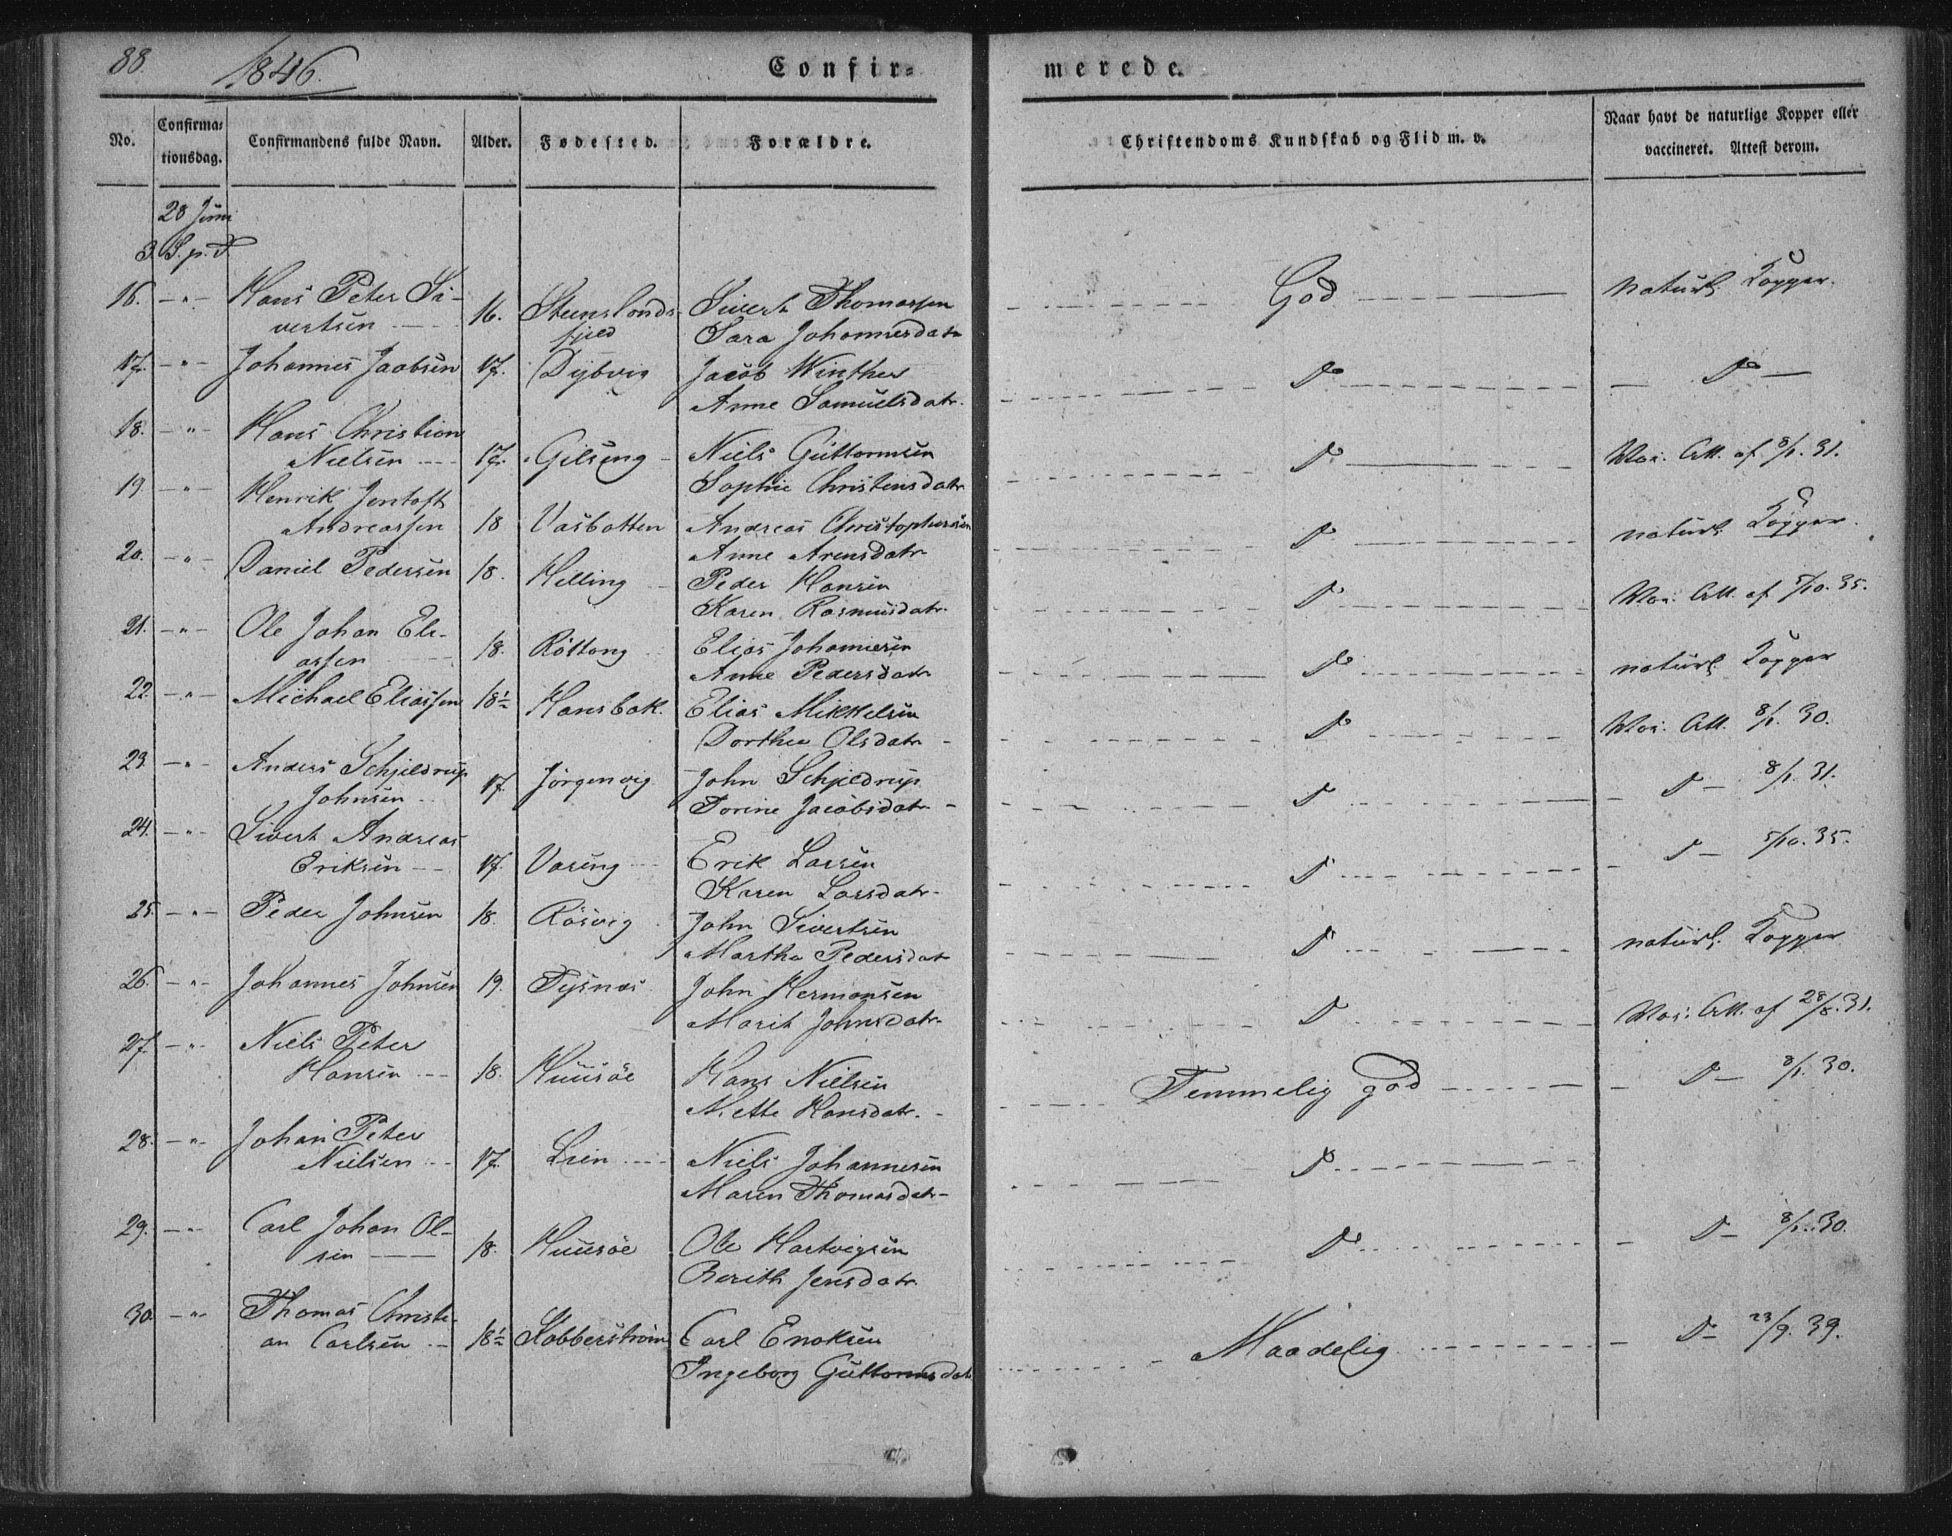 88. 1846. Confir= merede.
No. Confirma= tionsdag. Confirmandens fulde Navn. Alder. Fødested. Forældre. Christendoms Kundskab og Flid m. v. Naar havt de naturlige Kopper eller vaccineret. Attest derom.
28 Juni
3. S. p. T.
16. -"- Hans Peter Si- God naturl. Kopper.
vertsen 16. Steenslands- Sivert Thomassen
fjeld Sara Johannesdatr
17. -"- Johannes Jacobsen 17. Dybvig Jacob Winther Do Do
Anne Samuelsdatr.
18. -"- Hans Christian
Nielsen 17. Gilsing Niels Guttormsen D Vac. Att. af 8/1. 31.
19. -"- Henrik Jentoft Sophie Christensdatr
Andreassen 18 Vasbotten Andreas Christophersen D naturl. Kopper.
20. -"- Daniel Pedersen 18. Helling Anne Arensdatr
Peder Hansen D Vac. Att. af 5/10. 35.
Karen Rasmusdatr.
21. -"- Ole Johan Eli-
assen 18. Röttang Elias Johannesen D naturl. Kopper
Anne Pedersdatr
22. -"- Michael Eliassen 18½ Hansbak. Elias Mikkelsen D Vac. Att. 8/1. 30.
Dorthea Olsdatr
23. -"- Anders Schjeldrup
Johnsen 17. Jörgenvig John Schjeldrup D D - 8/1. 31.
Torine Jacobsdatr
24. -"- Sivert Andreas
Eriksen 17. Vasing Erik Larsen D D - 5/10. 35.
Karen Larsdatr
25. -"- Peder Johnsen 18. Rösvig John Sivertsen D naturl. Kopper
Martha Pedersdatr
26. -"- Johannes Johnsen 19. Tysnæs John Hermansen D Vac. Att. af 28/8. 31.
Marit Johnsdatr
27. -"- Niels Peter
Hansen 18. Huusöe Hans Nielsen Temmelig god D - 8/1. 30.
Mette Hansdatr.
28. -"- Johan Peter
Nielsen 17. Lien Niels Johannesen D
Maren Thomasdatr
29. -"- Carl Johan Ol-
sen 18. Huusöe Ole Hartvigsen D D - 8/1. 30.
Berith Jensdatr
30. -"- Thomas Christi-
an Carlsen 18½ Kobberström Carl Enoksen Maadelig D - 23/9. 39.
Ingeborg Guttormsdatr